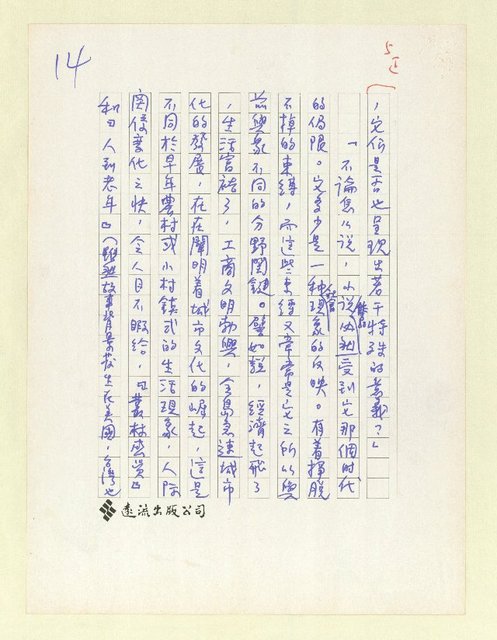 14
5正
，它似是否也呈現出若干特殊的意義？」
「不論怎么說，小說作品受到它那個時代
的侷限。它多少是一種社會現象的反映。有着擺脫
不掉的束縛，而這些束縛又常常是它之所以與
前輩象不同的分野關鍵。譬如說，經濟起飛了
，生活富裕了，工商文明勃興，全島急速城市
化的發展，在在闡明着城市文化的崛起，這是
不同於早年農村或小村鎮式的生活現象，人際
関係變化之快，令人目不暇給，『叢林盛宴』
和『人到老年』（雖然故事背景發生在美國，台灣也
遠流出版公司